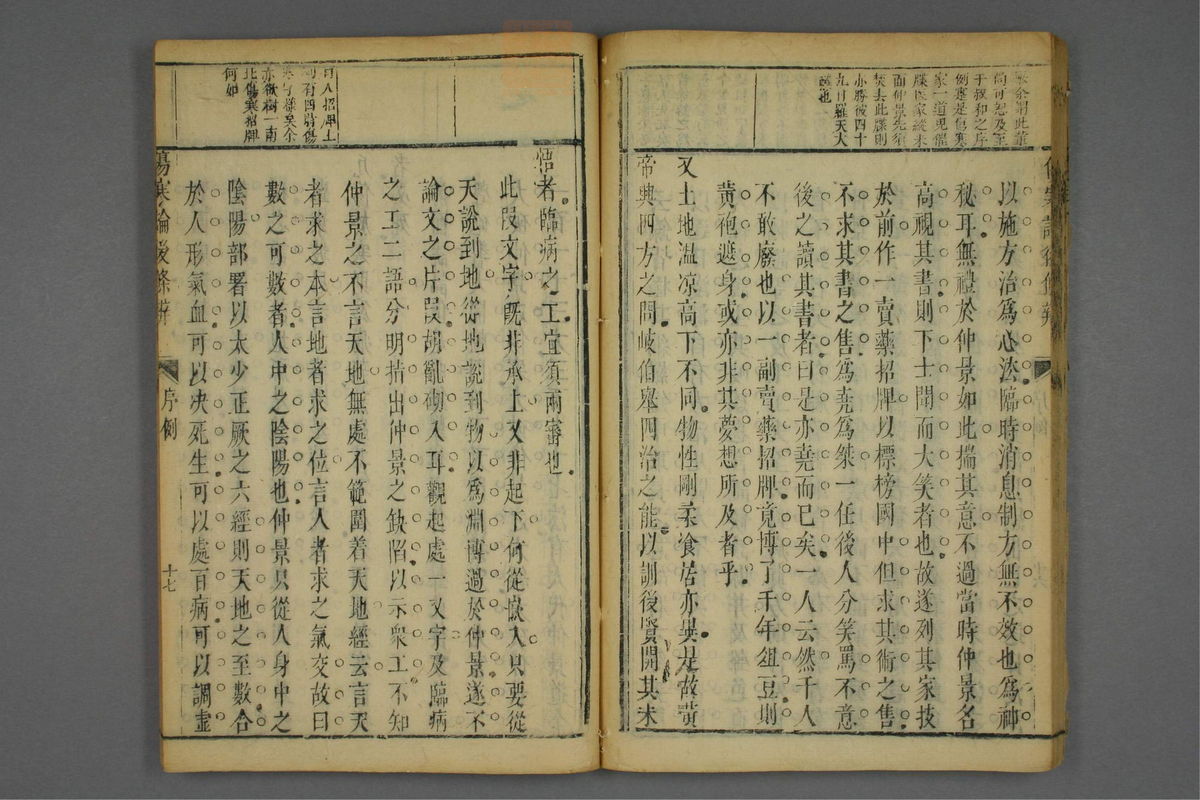 以施方治爲心法臨時消息制方無不效也爲神
秘耳無禮於仲景如此揣其意不過當時仲景名
高視其書則下士聞而大笑者也故遂列其家技
於前作一賣藥招牌以標榜國中但求其術之售
不求其書之售爲堯爲桀一任後人分笑罵不意
後之讀其書者曰是亦堯而已矣一人云然千人
不敢廢也以一副賣藥招牌竟博了千年俎豆則
黃袍遮身或亦非其夢想所及者乎
又土地溫凉高下不同物性剛柔飡居亦異是故黃
帝興四方之問岐伯舉四治之能以訓後賢開其未
尚可恕及至
于叔和之序
例寔是傷寒
家一道
醫家從來
面仲景先須
焚去此牒則
亦勝彼四十
九日羅天大
醮也
悟者臨病之工宜須兩審也
此段文字旣非承上又非起下何從嵌入只要從
天說到地從地說到物以爲淵博過於仲景遂不
論文之片段胡亂砌入耳觀起處一又字及臨病
之工二語分明指出仲景之缺陷以示衆工不知
仲景之不言天地無處不範圍着天地經云言天
者求之本言地者求之位言人者求之氣交故曰
數之可數者人中之陰陽也仲景只從人身中之
陰陽部署以太少正厥之六經則天地之至數合
於人形氣血可以决死生可以處百病可以調虛
人招牌上
有四時傷
寒字樣矣余
亦欲樹一南
北傷寒招牌
何如
傷寒論後條辨
序例
十七